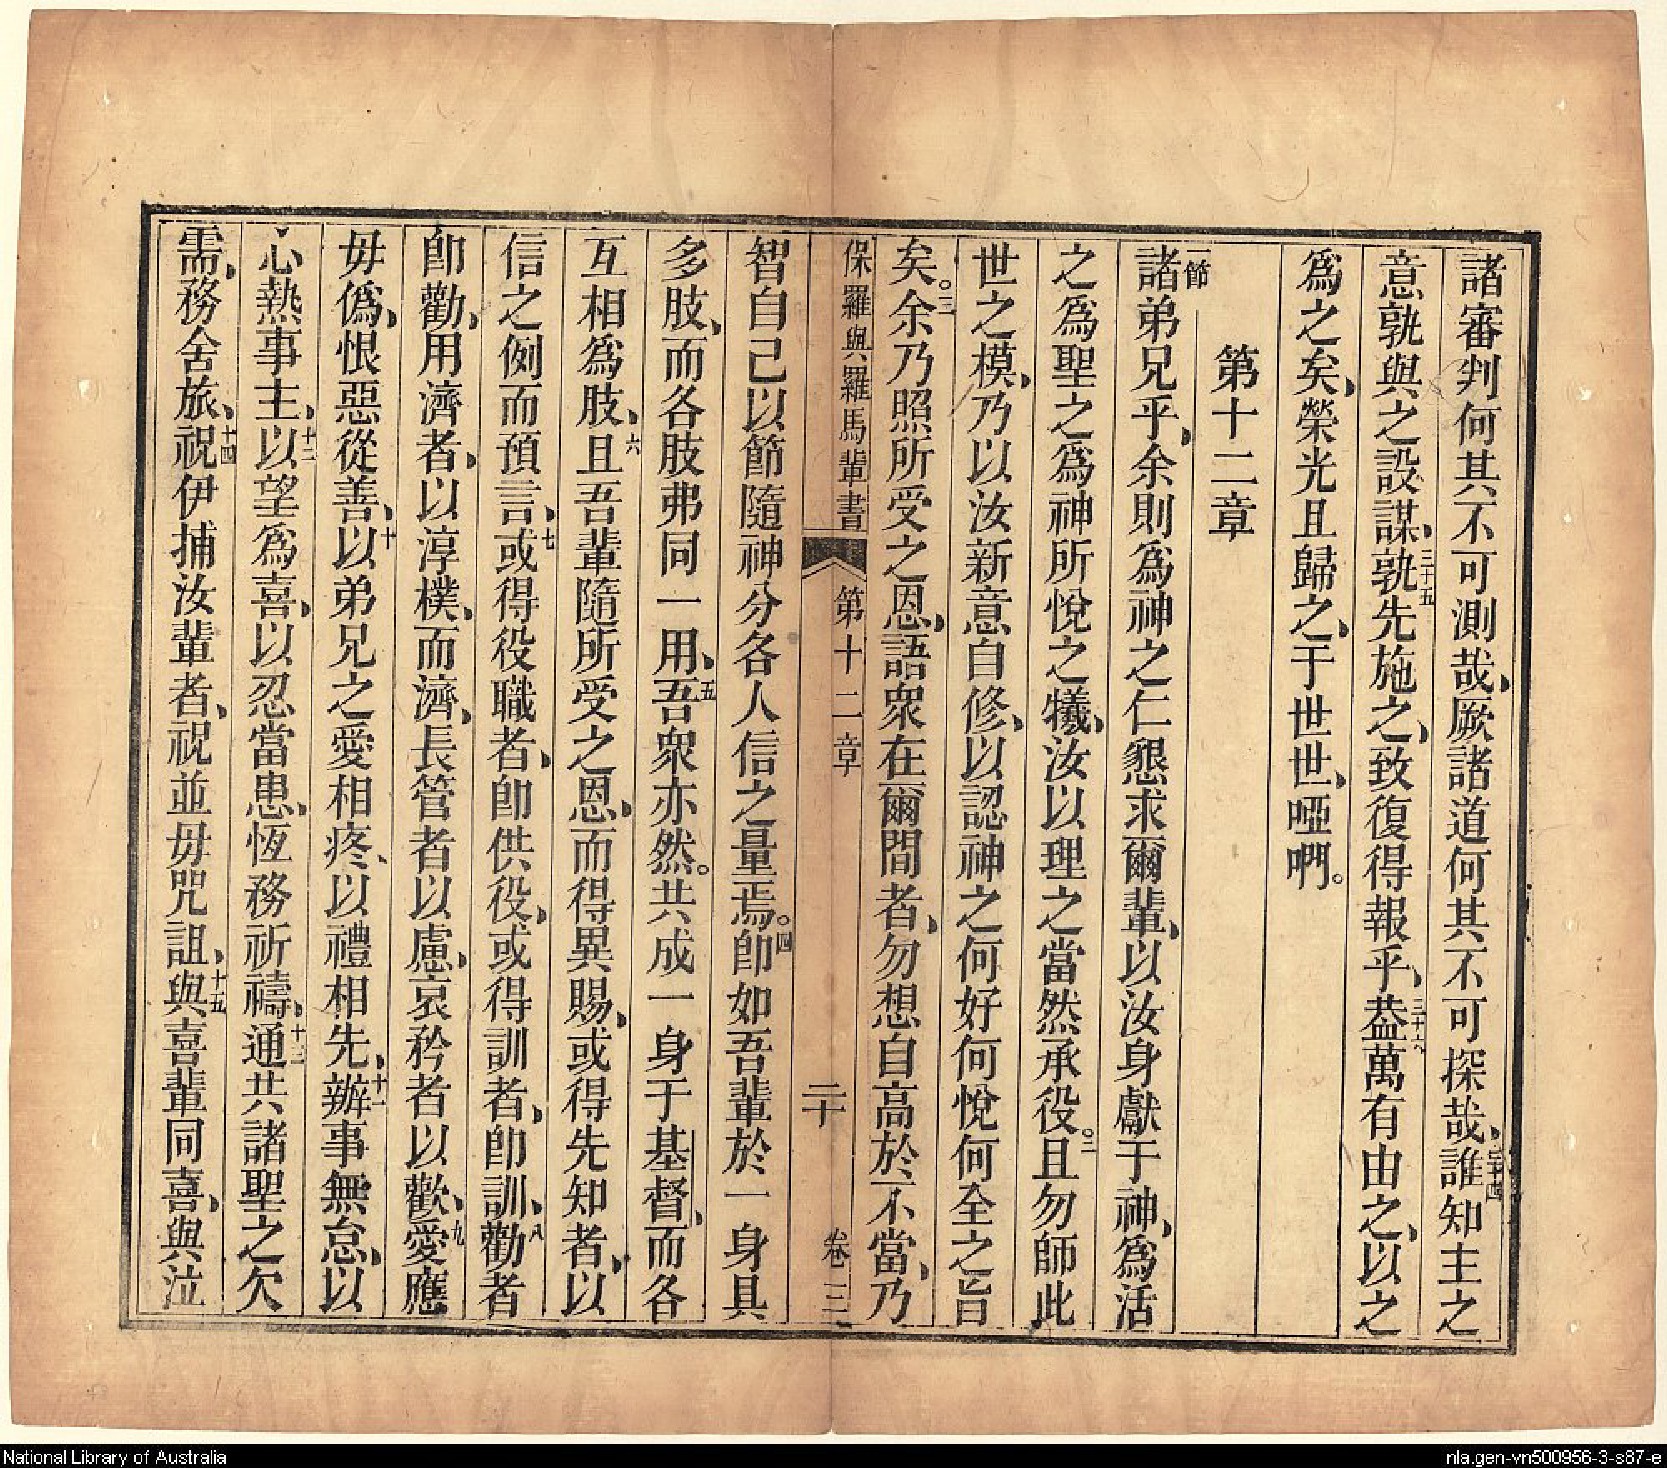 諸審判何其不可測哉、厥諸道何其不可探哉、三十四誰知主之
意孰與之設謀、三十五孰先施之、致復得報乎、三十六葢萬有由之、以之
爲之矣、榮光且歸之、于世世、啞啊。
第十二章
一節諸弟兄乎、余則爲神之仁懇求爾輩、以汝身獻于神、爲活
之爲聖之爲神所悅之犧、汝以理之當然承役。二且勿師此
世之模、乃以汝新意自修、以認神之何好何悅何全之旨
矣。三余乃照所受之恩、語衆在爾間者、勿想自高於不當、乃
保羅與羅馬輩書 第十二章 二十 卷三
智自己以節隨神分各人信之量焉。四卽如吾輩於一身具
多肢、而各肢弗同一用、五吾衆亦然。共成一身于基督、而各
互相爲肢、六且吾輩隨所受之恩、而得異賜、或得先知者、以
信之例而預言、七或得役職者、卽供役、或得訓者、卽訓、八勸者
卽勸、用濟者、以淳樸、而濟、長管者以慮、哀矜者以歡、九愛應
毋僞、恨惡從善、十以弟兄之愛相疼、以禮相先、十一辦事無怠、以
心熱事主、十二以望爲喜、以忍當患、恆務祈禱、十三通共諸聖之欠
需、務舍旅、十四祝伊捕汝輩者、祝並毋咒詛、十五與喜輩同喜、與泣
National Library of Australia
nla.gen-vn500956-3-s87-e